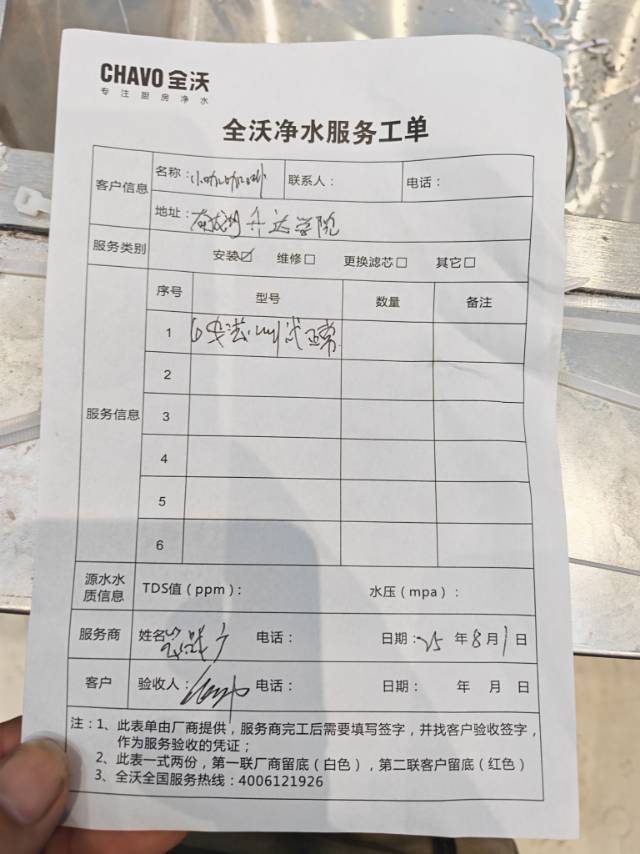 CHAVO 全沃
专注厨房净水
全沃净水服务工单
客户信息
名称：小咖咖啡 联系人： 电话：
地址： 学院
服务类别 安装☑ 维修□ 更换滤芯□ 其它□
服务信息
序号 型号 数量 备注
1 已安装测试正常
2
3
4
5
6
源水水质信息 TDS值（ppm）： 水压（mpa）：
服务商 姓名 电话： 日期：25 年 8 月 1 日
客户 验收人： 电话： 日期： 年 月 日
注：1、此表单由厂商提供，服务商完工后需要填写签字，并找客户验收签字，
作为服务验收的凭证；
2、此表一式两份，第一联厂商留底（白色），第二联客户留底（红色）
3、全沃全国服务热线：4006121926